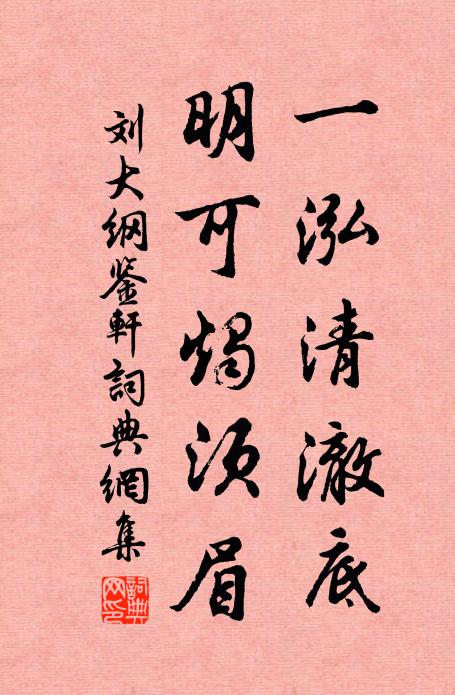 一泓清澈底
明可烛须眉
刘大纲鉴轩词典网集
詞典网印